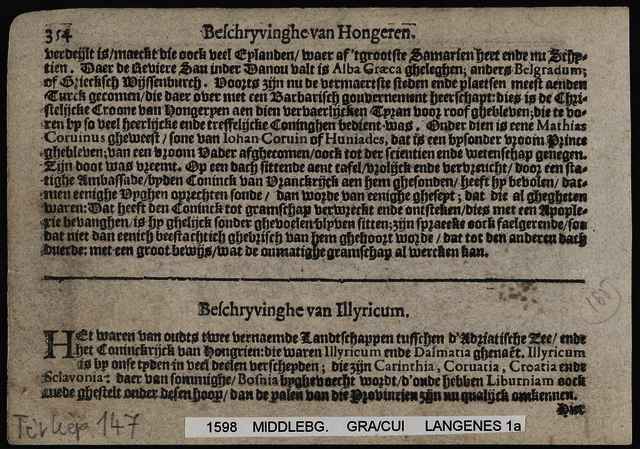 354 Beschryvinghe van Hongeren.
verdeylt is/maeckt die oock veel Eylanden/waer af 'tgrootste Samarien heet ende nu Schp-
tien. Daer de Reviere Sau inder Danou valt is Alba Græca gheleghen; anders Belgradum;
of Griecksch Wijssenburch. Voorts zijn nu de vermaertste steden ende plaetsen meest aenden
Turck gecomen/die daer over met een Barbarisch gouvernement heerschapt: dies is de Chri-
stelijcke Croone van Hongeryen aen dien vervaerlijcken Tyran voor roof ghebleven; die te vo-
ren by so veel heerlijcke ende treffelijcke Coninghen bedient was. Onder dien is eene Mathias
Coruinus gheweest/sone van Iohan Coruin of Huniades, dat is een bysonder vroom Prince
ghebleven; van een vroom Vader afghecomen/oock tot der scientien ende wetenschap genegen.
Zijn doot was vreemt. Op een dach sittende aent tafel/vrolijck ende verbreucht/door een sta-
tighe Ambassade/byden Coninck van Vranckrijck aen hem ghesonden/heeft hy bevolen/dat-
men eenighe Vyghen oprechten soude/dan worde van eenighe ghesept; dat die al ghegheten
waren: Dat heeft den Coninck tot gramschap verwreckt ende ontsteken/dies met een Apople-
xie bevanghen/is hy ghelijck sonder ghevoelen blyven sitten; zijn spraecke oock faelgerende/soo
dat niet dan eenich beestachtich ghebrisch van hem ghehoort worde/dat tot den anderen dach
duerde: met een groot bewijs/wat de onmatighe gramschap al wercken kan.
Beschryvinghe van Illyricum.
HEt waren van oudts twee vernaemde Landtschappen tusschen d'Adriatische Zee/ende
het Coninckrijck van Hongrien: die waren Illyricum ende Dalmatia ghenaēt. Illyricum
is by onse tyden in veel deelen verscheyden; die zijn Carinthia, Coruatia, Croatia ende
Sclavonia: daer van sommighe/Bosnia byghevoecht wordt/d'onde hebben Liburniam oock
mede ghestelt onder desen hoop/dan de palen van die Provincien zijn nu qualijck om kennen.
Hier
165
147
1598 MIDDLEBG. GRA/CUI LANGENES 1a